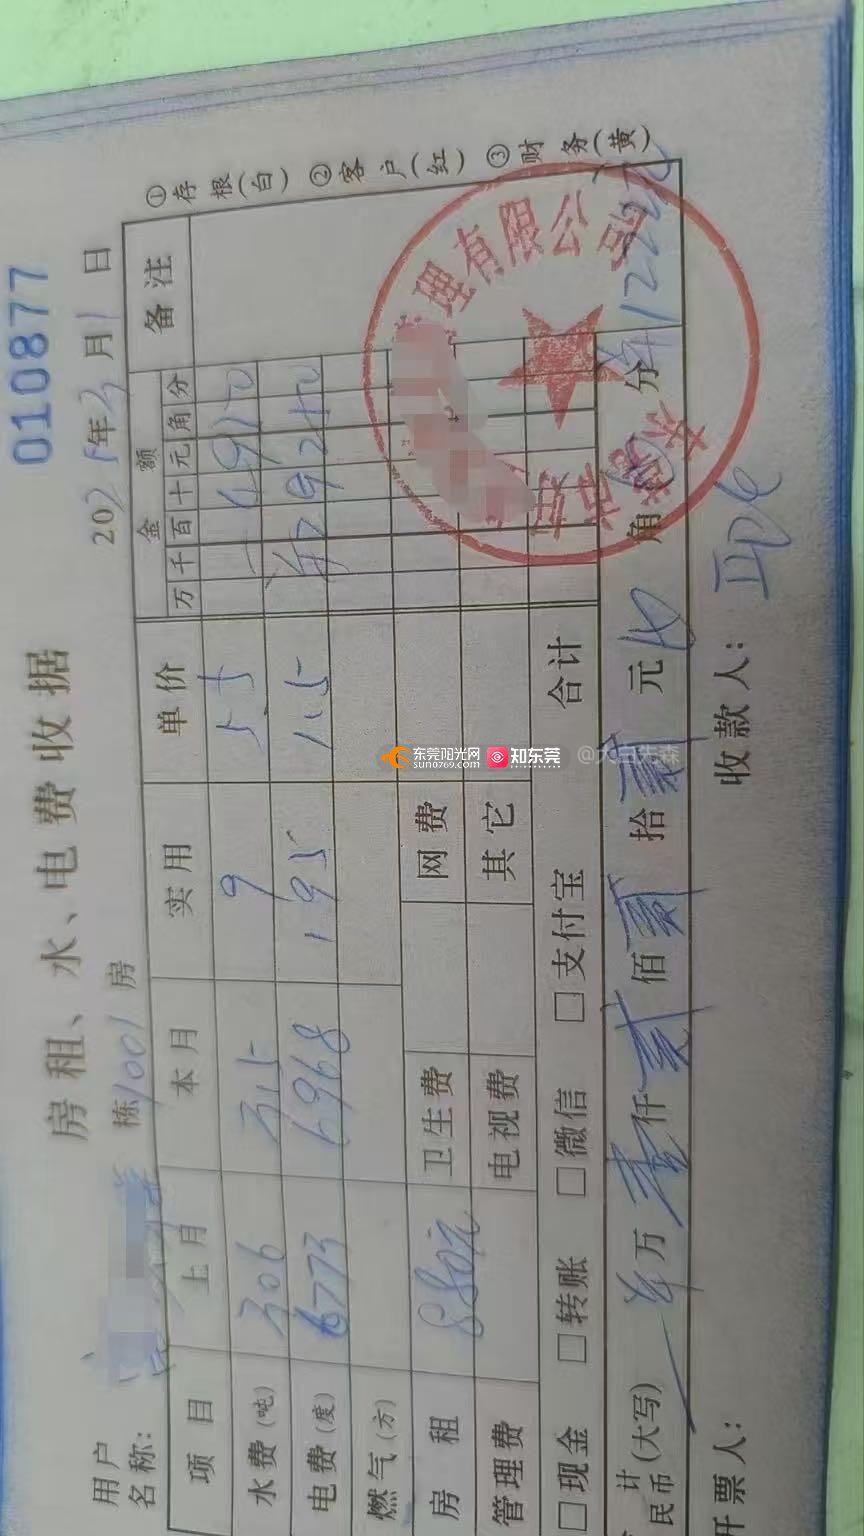 房租、水、电费收据
010877
用户名称: 栋1001房
2025年3月1日
项目 上月 本月 实用 单价 金额 备注
万 千 百 十 元 角 分
水费(吨) 306 315 9 5.5 4950
电费(度) 6773 6968 195 1.5 29250
燃气(方)
房租 880元 卫生费 网费
管理费 电视费 其它
□现金 □转账 □微信 □支付宝 合计
计(大写)民币 万 壹 仟 贰 佰 贰 拾 贰 元 角 分 ¥1222
开票人: 收款人:
①存根(白) ②客户(红) ③财务(黄)
理有限公司
东莞市
东莞阳光网
sun0769.com
知东莞